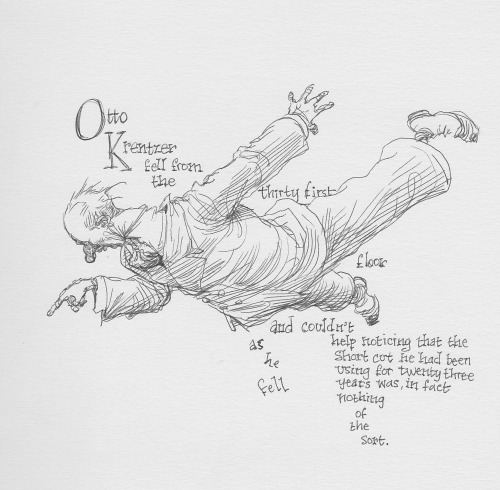 Otto
Krentzer
fell from
the
thirty first
floor
and couldn't
as
he
fell
help noticing that the
short cut he had been
using for twenty three
years was, in fact
nothing
of
the
sort.